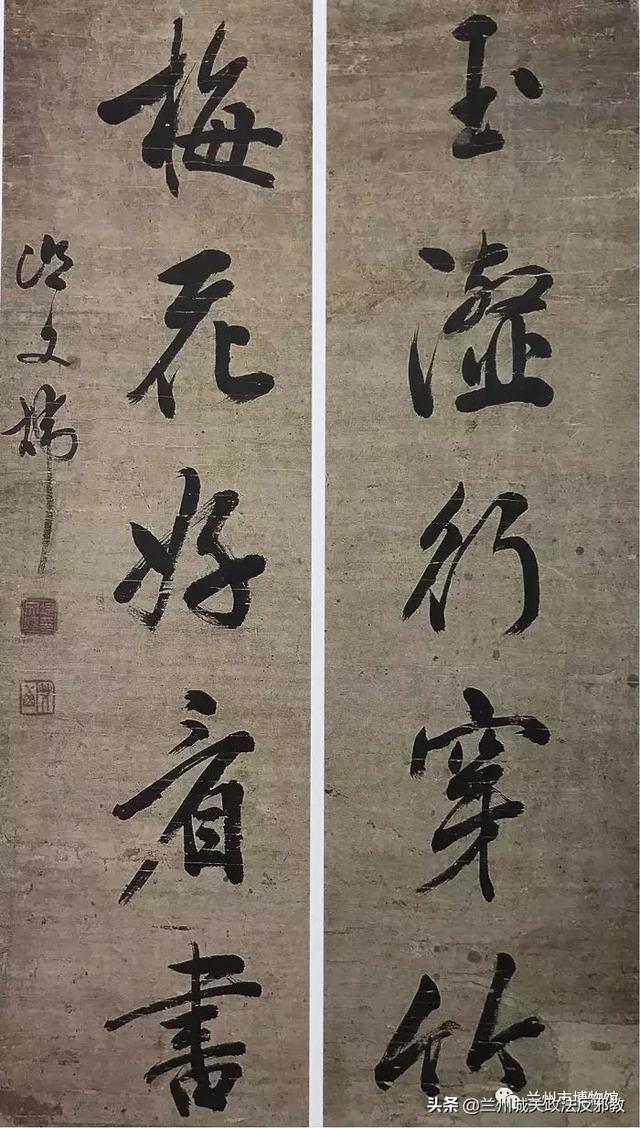 玉行穿竹
梅花好看書
文
兰州市博物馆
头条 @兰州城关政法反邪教